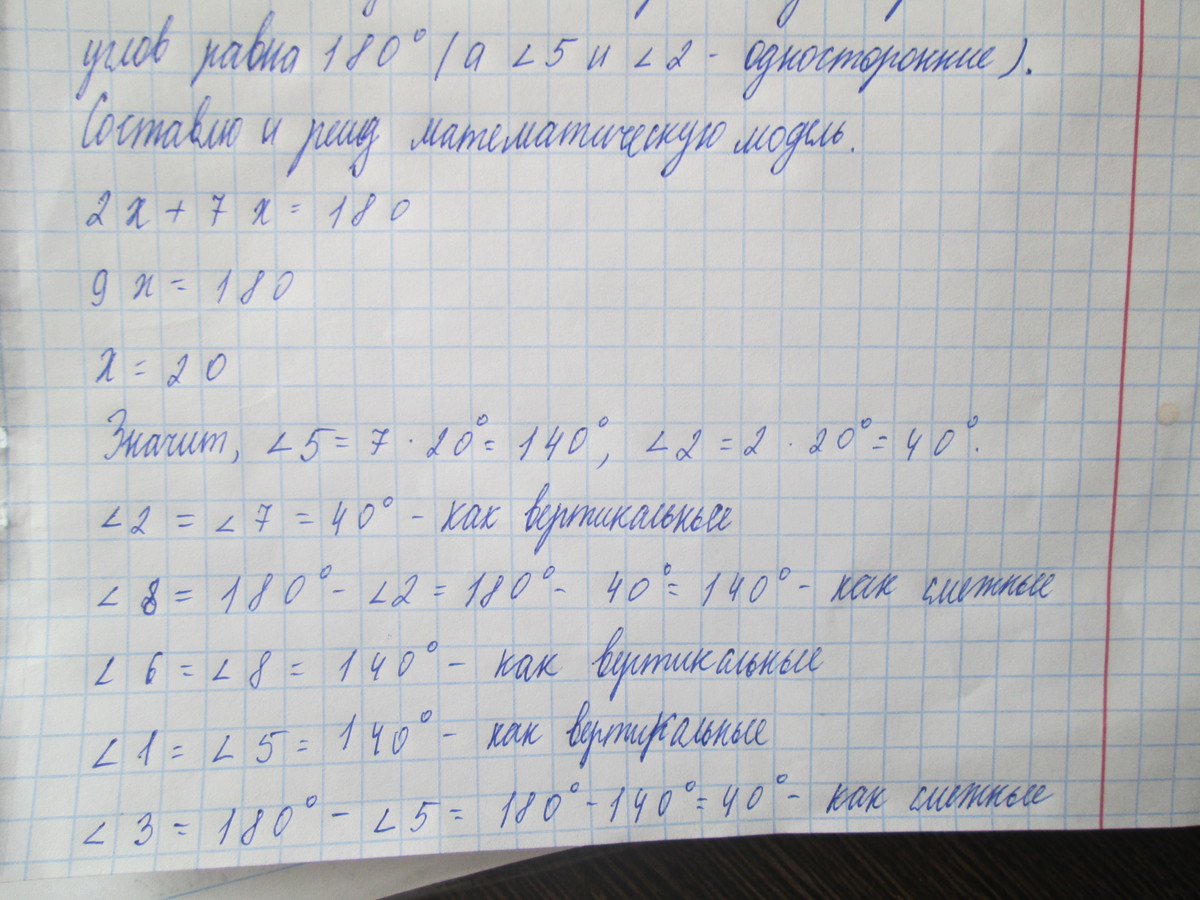 углов равна 180° (а ∠5 и ∠2 - односторонние).
Составлю и решу математическую модель.
2x + 7x = 180
9x = 180
x = 20
Значит, ∠5 = 7 · 20° = 140°, ∠2 = 2 · 20° = 40°.
∠2 = ∠7 = 40° - как вертикальные
∠8 = 180° - ∠2 = 180° - 40° = 140° - как смежные
∠6 = ∠8 = 140° - как вертикальные
∠1 = ∠5 = 140° - как вертикальные
∠3 = 180° - ∠5 = 180° - 140° = 40° - как смежные